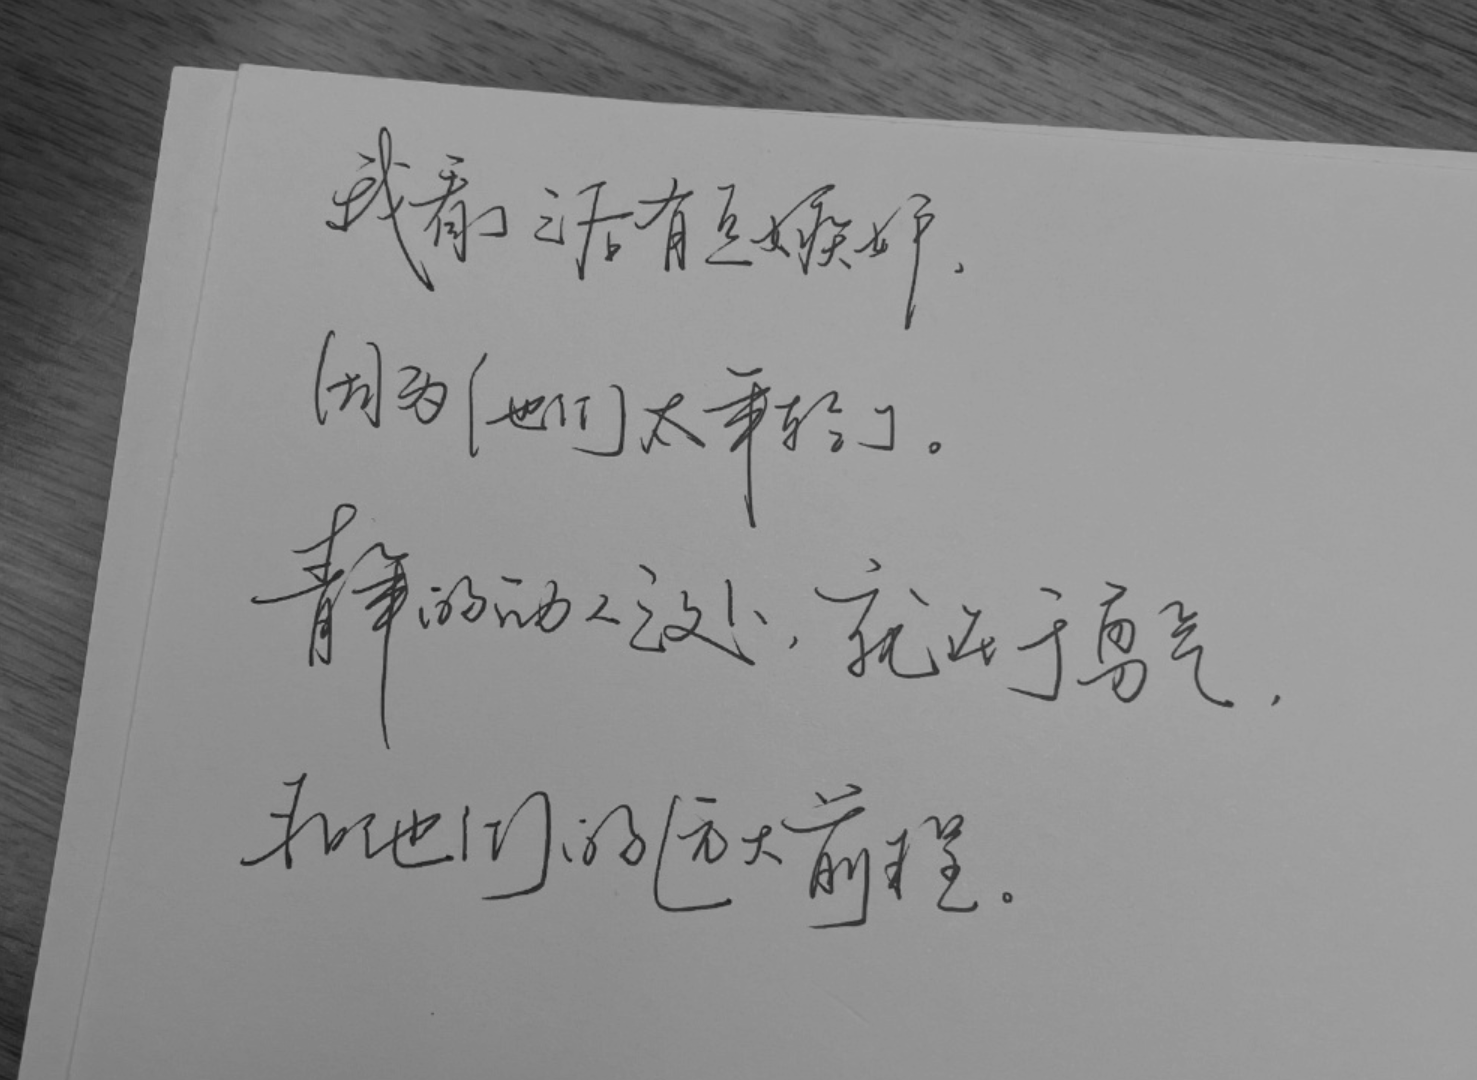 我看了之后有点嫉妒,
因为他们太年轻了。
青年的动人之处,就在于勇气,
和他们的远大前程。